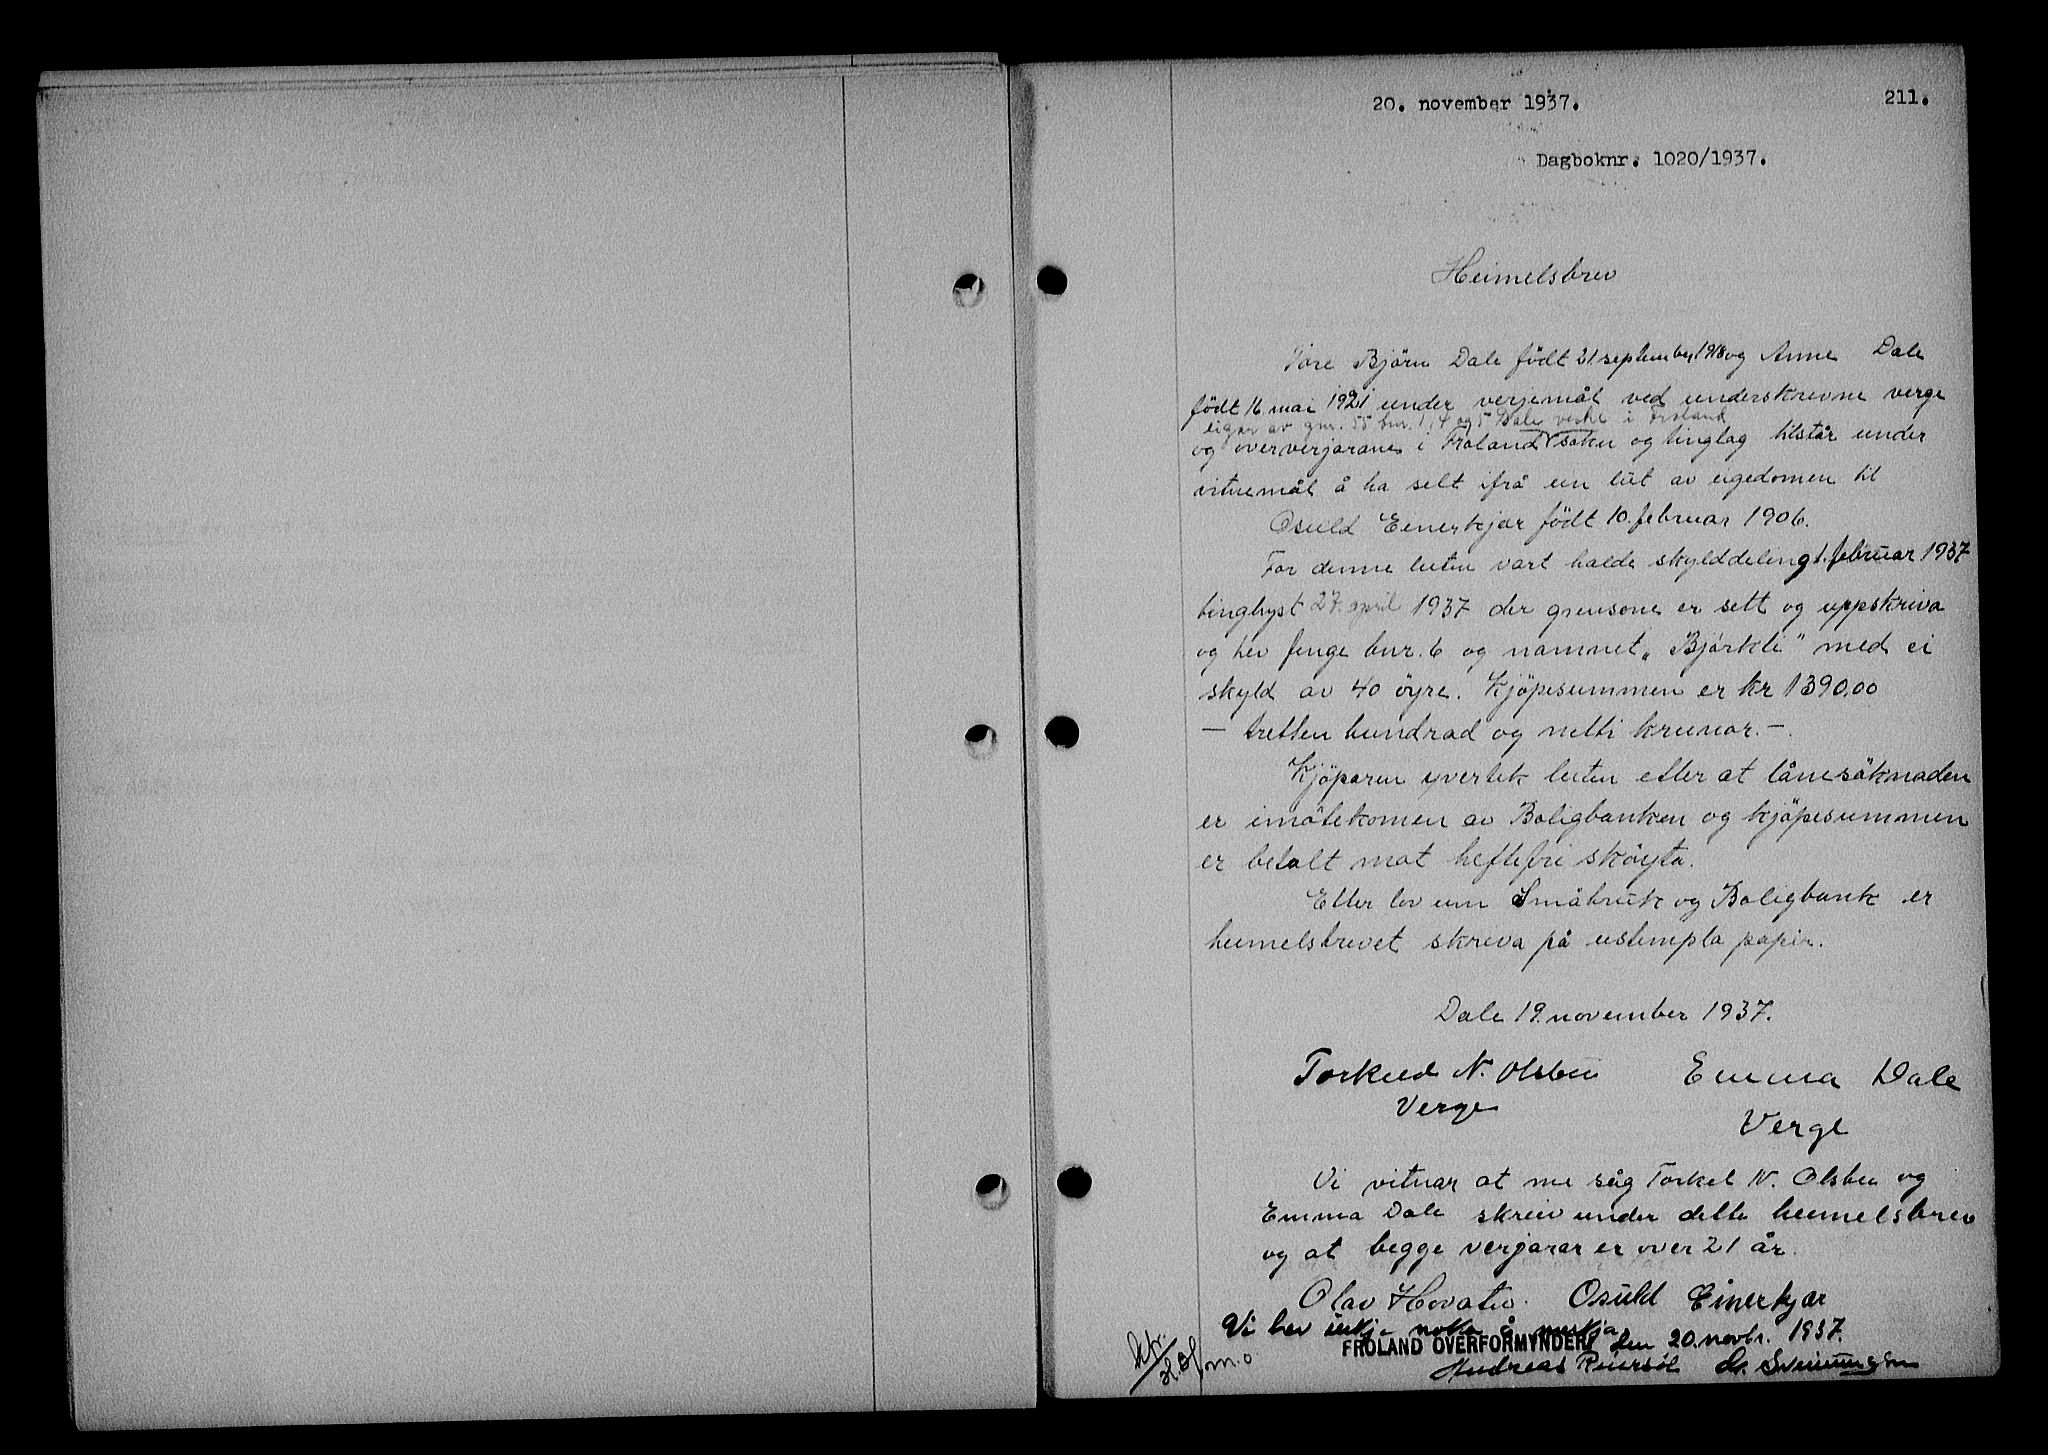 20. november 1937.
211.
Dagboknr. 1020/1937.
Heimelsbrev
Tore Björn Dale födt 21 september 1918 og Anne Dale
födt 16 mai 1921 under verjemål ved underskrevne verge
eigar av gnr. 55 bnr. 1, 4 og 5 Dale vestre i Froland
og oververjarane i Froland sokn og tinglag tilstår under
vitnemål å ha selt ifrå ein lut av eigedomen til
Osuld Einerkjær födt 10. februar 1906.
For denne luten vart halde skylddeling 1. februar 1937
tinglyst 27. april 1937 der grensone er sett og uppskriva
og hev fenge bnr. 6 og namnet „Björkli" med ei
skyld av 40 öyre. Kjöpesummen er kr 1390,00
— tretten hundrad og nitti krunor. —.
Kjöparen yvertek luten etter at lånesöknaden
er imötekomen av Boligbanken og kjöpesummen
er betalt mot heftefri sköyta.
Etter lov um Småbruk og Boligbank er
heimelsbrevet skriva på ustempla papir.
Dale 19. november 1937.
Torkeld N. Olsbu Emma Dale
Verge
Verge
Vi vitnar at me såg Torkel N. Olsbu og
Emma Dale skreiv under dette heimelsbrev
og at begge verjarar er over 21 år.
Olav Hovatn. Osuld Einerkjær
Vi hev inkje noko å merkja
FROLAND OVERFORMYNDERI den 20. novbr. 1937.
Andreas Reiersöl Sveinungsen